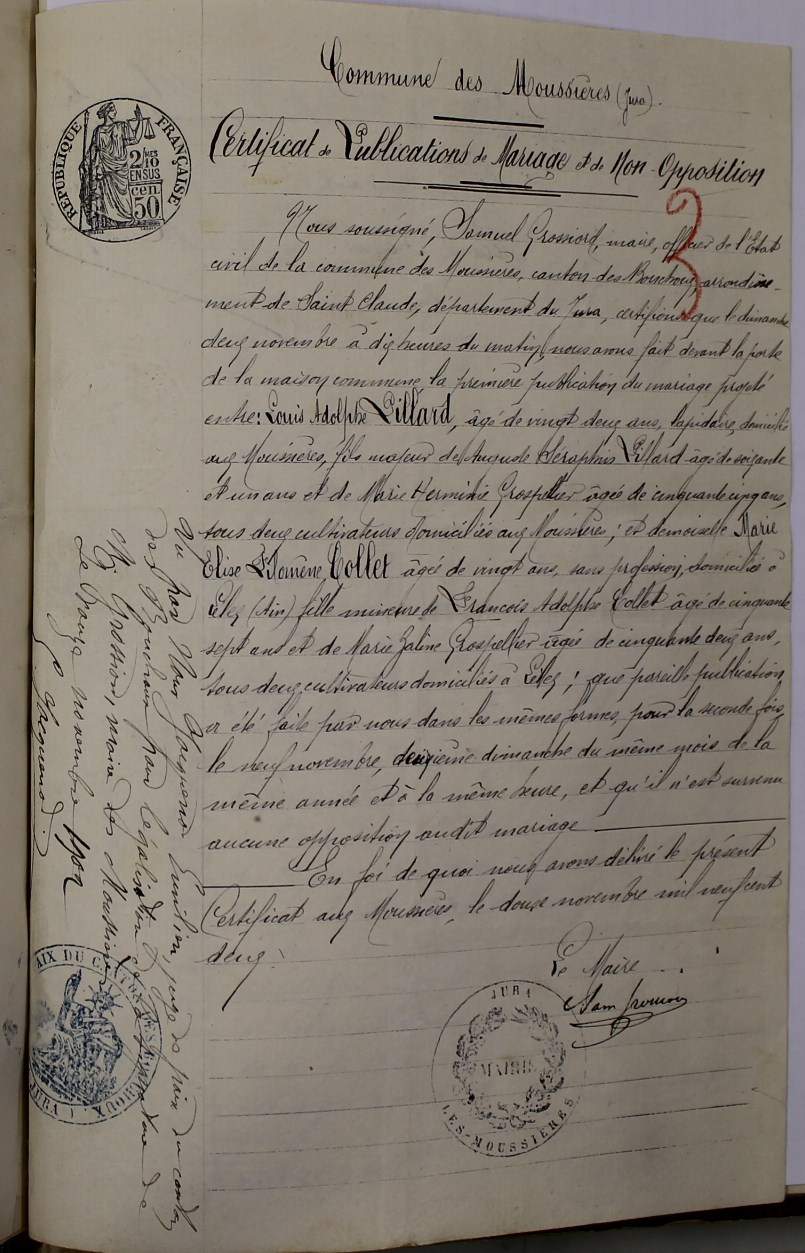 Commune des Moussières (Jura).
Certificat de Publications de Mariage et de Non-Opposition
RÉPUBLIQUE FRANÇAISE
2/10 EN SUS
50 cen
3
Nous soussigné, Samuel Grossiord, maire, officier de l'Etat
civil de la commune des Moussières, canton des Bouchoux, arrondisse-
ment de Saint Claude, département du Jura, certifions que le dimanche
deux novembre à dix heures du matin, nous avons fait devant la porte
de la maison commune, la première publication du mariage projeté
entre: Louis Adolphe Pillard, âgé de vingt deux ans, lapidaire, domicilié
aux Moussières, fils majeur de Auguste Séraphin Pillard âgé de soixante
et un ans et de Marie Herminie Grospellier âgée de cinquante cinq ans,
tous deux cultivateurs domiciliés aux Moussières; et demoiselle Marie
Elise Philomène Collet âgée de vingt ans, sans profession, domiciliée à
Lélex (Ain) fille mineure de François Adolphe Collet âgé de cinquante
sept ans et de Marie Zaline Grospellier âgée de cinquante deux ans,
tous deux cultivateurs domiciliés à Lélex; que pareille publication
a été faite par nous dans les mêmes formes, pour la seconde fois,
le neuf novembre, deuxième dimanche du même mois de la
même année et à la même heure, et qu'il n'est survenu
aucune opposition audit mariage
En foi de quoi nous avons délivré le présent
Certificat aux Moussières, le douze novembre mil neuf cent
deux.
Le Maire
Sam Grossiord
JURA
MAIRIE
LES-MOUSSIÈRES
Vu par Nous Emilien, juge de paix du canton
des Bouchoux pour légalisation de la signature de
M. Grossiord, maire des Moussières
Le treize novembre 1902
JURA